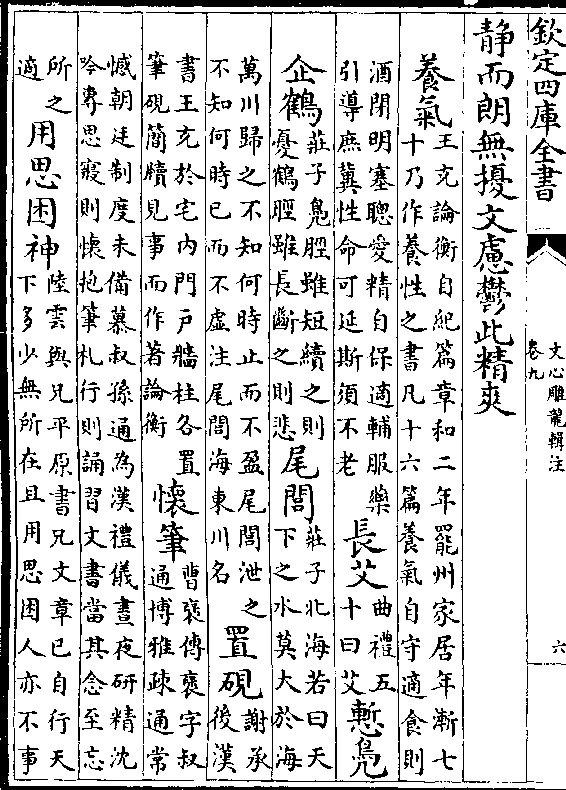 欽定四庫全書
文心雕龍輯注
卷九
六
静而朗無擾文慮鬱此精爽
養氣王充論衡自紀篇章和二年罷州家居年漸七
十乃作養性之書凡十六篇養氣自守適食則
酒閉明塞聰愛精自保適輔服藥
引導庶冀性命可延斯須不老
長艾曲禮五
十曰艾
慙鳧
企鶴莊子鳧脛雖短續之則
憂鶴脛雖長斷之則悲
尾閭莊子北海若曰天
下之水莫大於海
萬川歸之不知何時止而不盈尾閭泄之
不知何時已而不虛注尾閭海東川名
置硯謝承
後漢
書王充於宅内門戸牆柱各置
筆硯簡牘見事而作著論衡
懷筆曹襃傳襃字叔
通博雅疎通常
憾朝廷制度未備慕叔孫通為漢禮儀晝夜研精沈
吟專思寢則懷抱筆札行則誦習文書當其念至忘
所之
適
用思困神陸雲與兄平原書兄文章已自行天
下多少無所在且用思困人亦不事